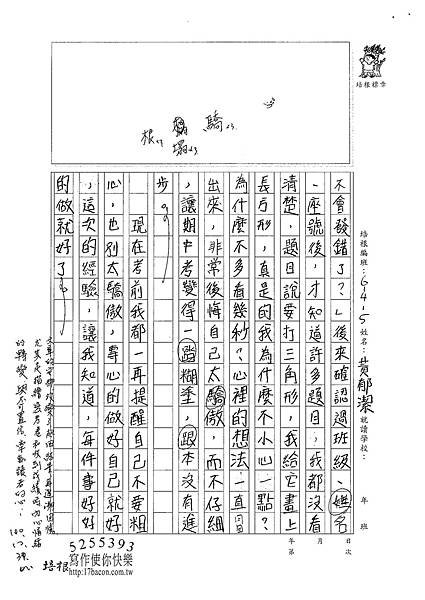 培根標章
培根編班：6-4-5 姓名：黃郁潔 就讀學校：　年　班
年 月 日
第 次
驕
塌
根
不會發錯了？」後來確認過班級、姓名
、座號後，才知道許多題目，我都沒看
清楚，題目說要打三角形，我給它畫上
長方形，真是的我為什麼不小心一點？
為什麼不多看幾秒？心裡的想法一直冒
出來，非常後悔自己太驕傲，而不仔細
，讓期中考變得一蹋糊塗，跟本沒有進
步。
現在考前我都一再提醒自己不要粗
心，也別太驕傲，專心的做好自己就好
，這次的經驗，讓我知道，每件事好好
的做就好了。
5255393
寫作使你快樂
http://17bacon.com.tw/
培根